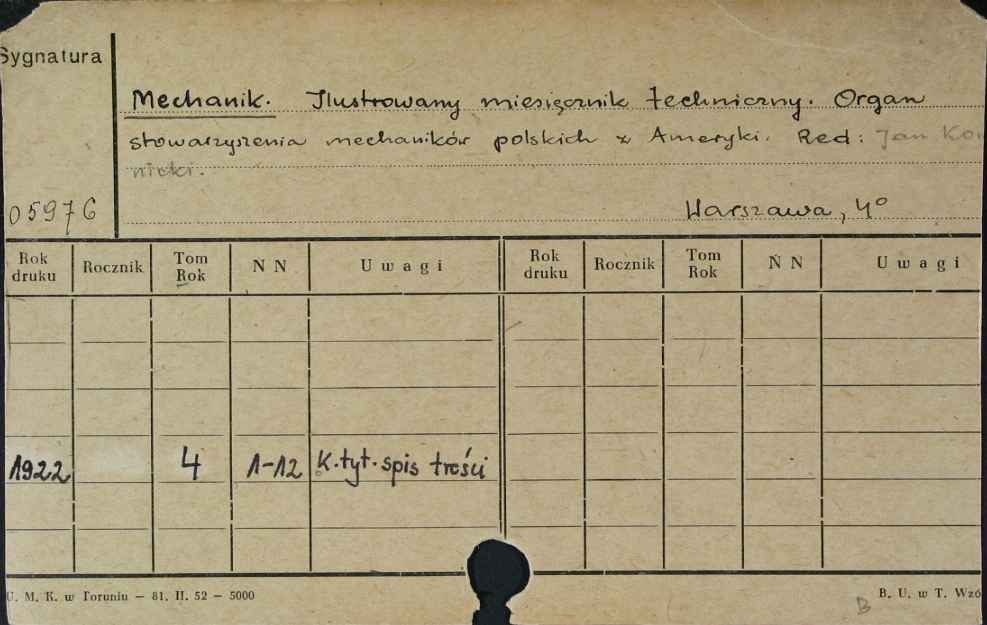 Sygnatura
Mechanik. Ilustrowany miesięcznik techniczny. Organ
stowarzyszenia mechaników polskich z Ameryki. Red: Jan Ko
nicki.
05976
Warszawa, 4º
Rok druku Rocznik Tom Rok N N Uwagi Rok druku Rocznik Tom Rok N N Uwagi
1922 4 1-12 K. tyt. spis treści
U. M. K. w Toruniu — 81. II. 52 — 5000
B. U. w T. Wzó
B